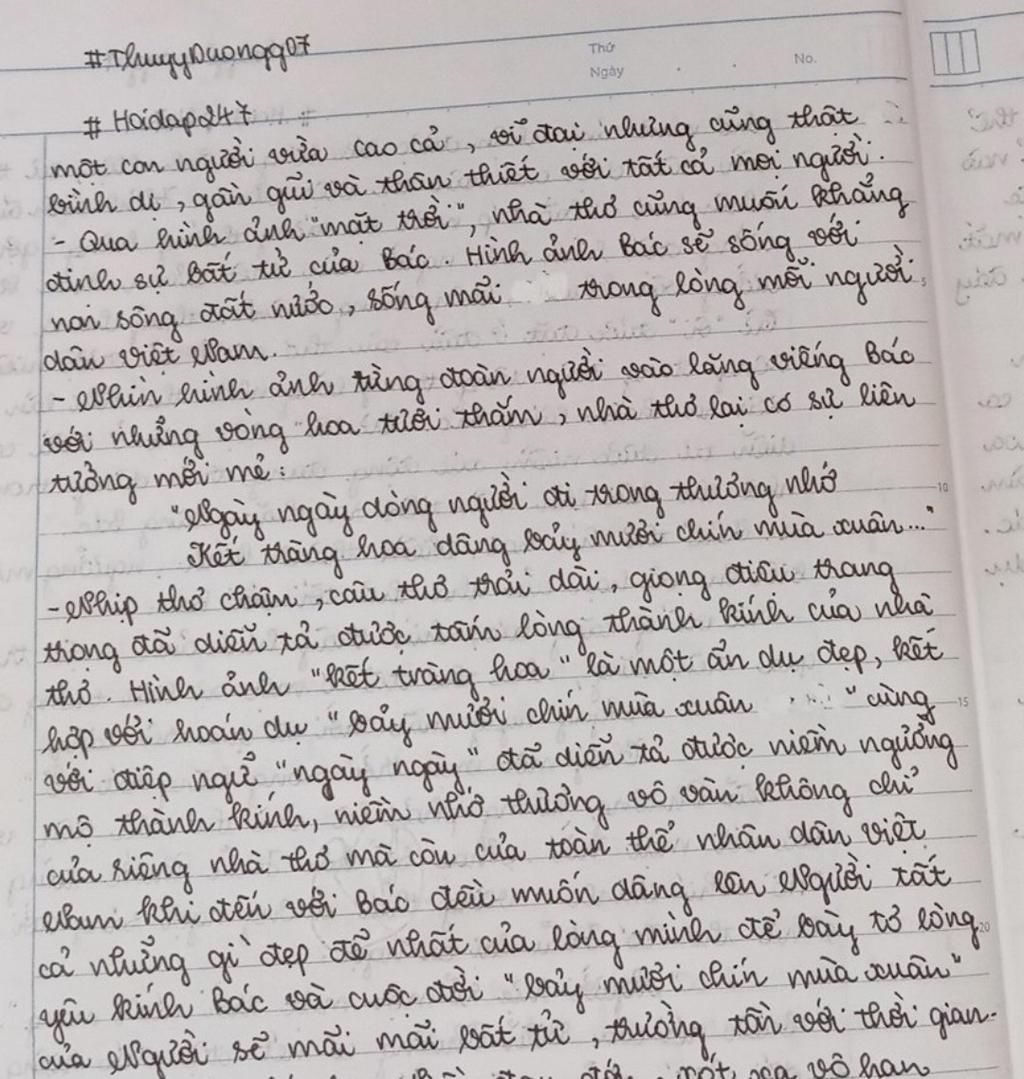 #ThuyyDuongg07
Thứ
Ngày
No.
#Hoidap247
một con người vừa cao cả, vĩ đại nhưng cũng thật
bình dị, gần gũi và thân thiết với tất cả mọi người.
- Qua hình ảnh "mặt trời", nhà thơ cũng muốn khẳng
định sự bất tử của Bác. Hình ảnh Bác sẽ sống với
non sông đất nước, sống mãi trong lòng mỗi người
dân Việt Nam.
- Nhìn hình ảnh từng đoàn người vào lăng viếng Bác
với những vòng hoa tươi thắm, nhà thơ lại có sự liên
tưởng mới mẻ:
"Ngày ngày dòng người đi trong thương nhớ
10
Kết tràng hoa dâng bảy mươi chín mùa xuân..."
- Nhịp thơ chậm, câu thơ trải dài, giọng điệu trang
trọng đã diễn tả được tấm lòng thành kính của nhà
thơ. Hình ảnh "kết tràng hoa" là một ẩn dụ đẹp, kết
hợp với hoán dụ "bảy mươi chín mùa xuân" cùng
15
với điệp ngữ "ngày ngày" đã diễn tả được niềm ngưỡng
mộ thành kính, niềm nhớ thương vô vàn không chỉ
của riêng nhà thơ mà còn của toàn thể nhân dân Việt
Nam khi đến với Bác đều muốn dâng lên Người tất
cả những gì đẹp đẽ nhất của lòng mình để bày tỏ lòng
20
yêu kính Bác và cuộc đời "bảy mươi chín mùa xuân"
của Người sẽ mãi mãi bất tử, trường tồn với thời gian.
xót xa vô hạn